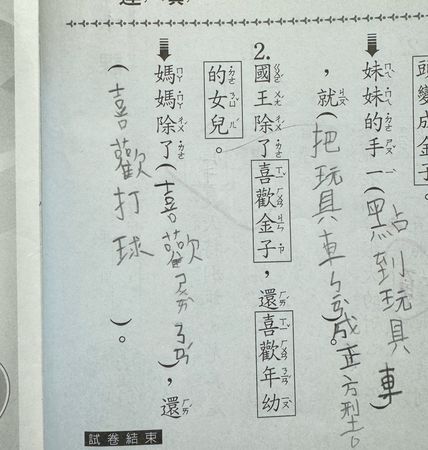 頭變成金子。
妹妹的手一(點到玩具車)
，就(把玩具車ㄅㄧㄢˋ成正方型。)。
2.國王除了喜歡金子，還喜歡年幼
的女兒。
媽媽除了(喜歡)，還
(喜歡打球)。
試卷結束